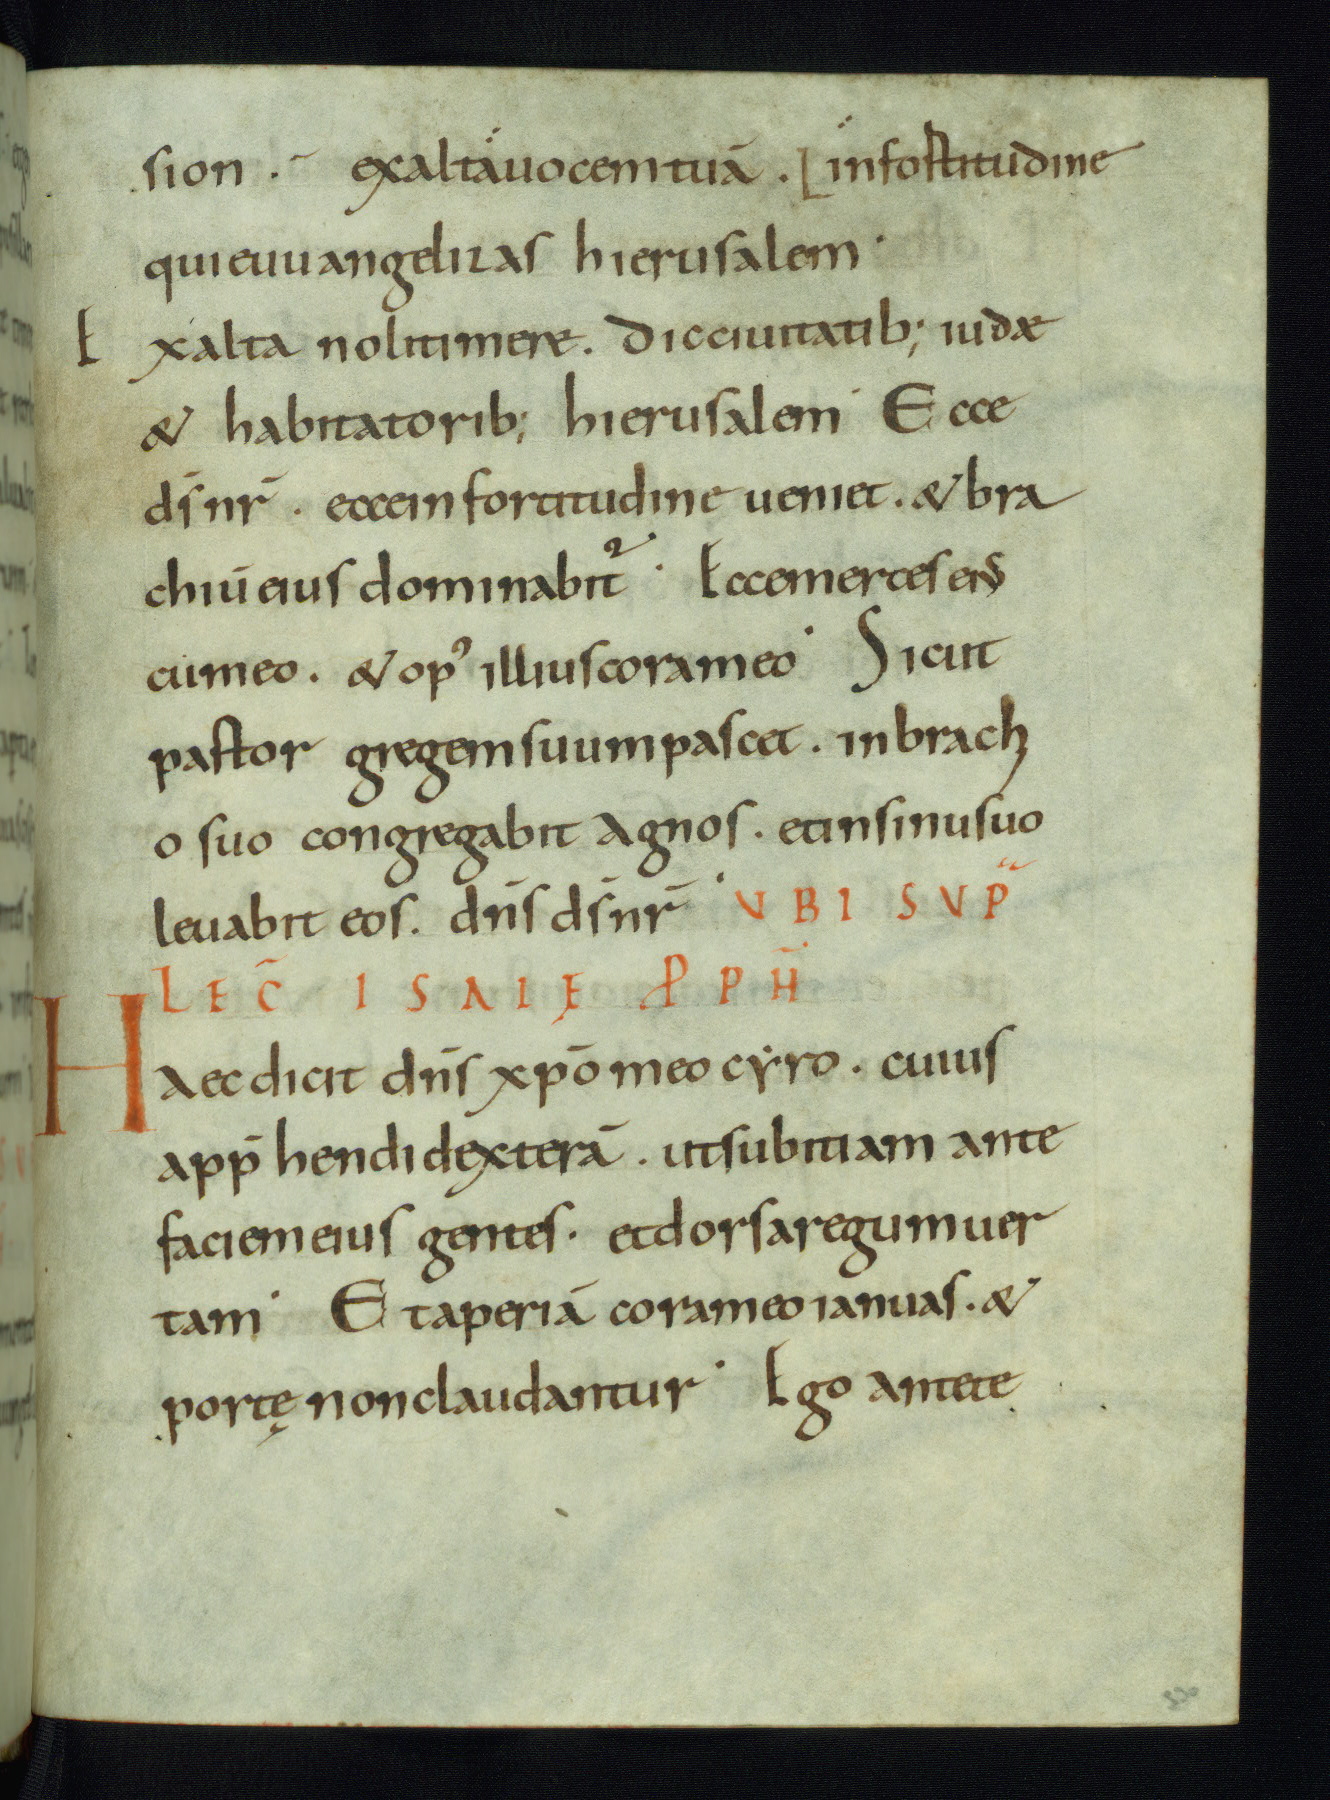 sion . exalta uocem tuā . [ in fortitudine
qui euuangelizas hierusalem ·
Exalta noli timere . Dic ciuitatib; iudæ
& habitatorib; hierusalem · Ecce
ds̄ nr̄ . ecce in fortitudine ueniet . & bra
chiū eius dominabit᷑ · Ecce merces eius
cum eo . & opꝰ illius coram eo · Sicut
pastor gregem suum pascet . in brachi
o suo congregabit agnos . et in sinu suo
leuabit eos . dn̄s ds̄ nr̄ · VBI SVP̄
LEC̄ ISAIĘ PPH̄
Haec dicit dn̄s xpō meo cẏro . cuius
app̄hendi dexterā . ut subiciam ante
faciem eius gentes . et dorsa regum uer
tam · Et aperiā coram eo ianuas . &
portę non claudantur · Ego ante te